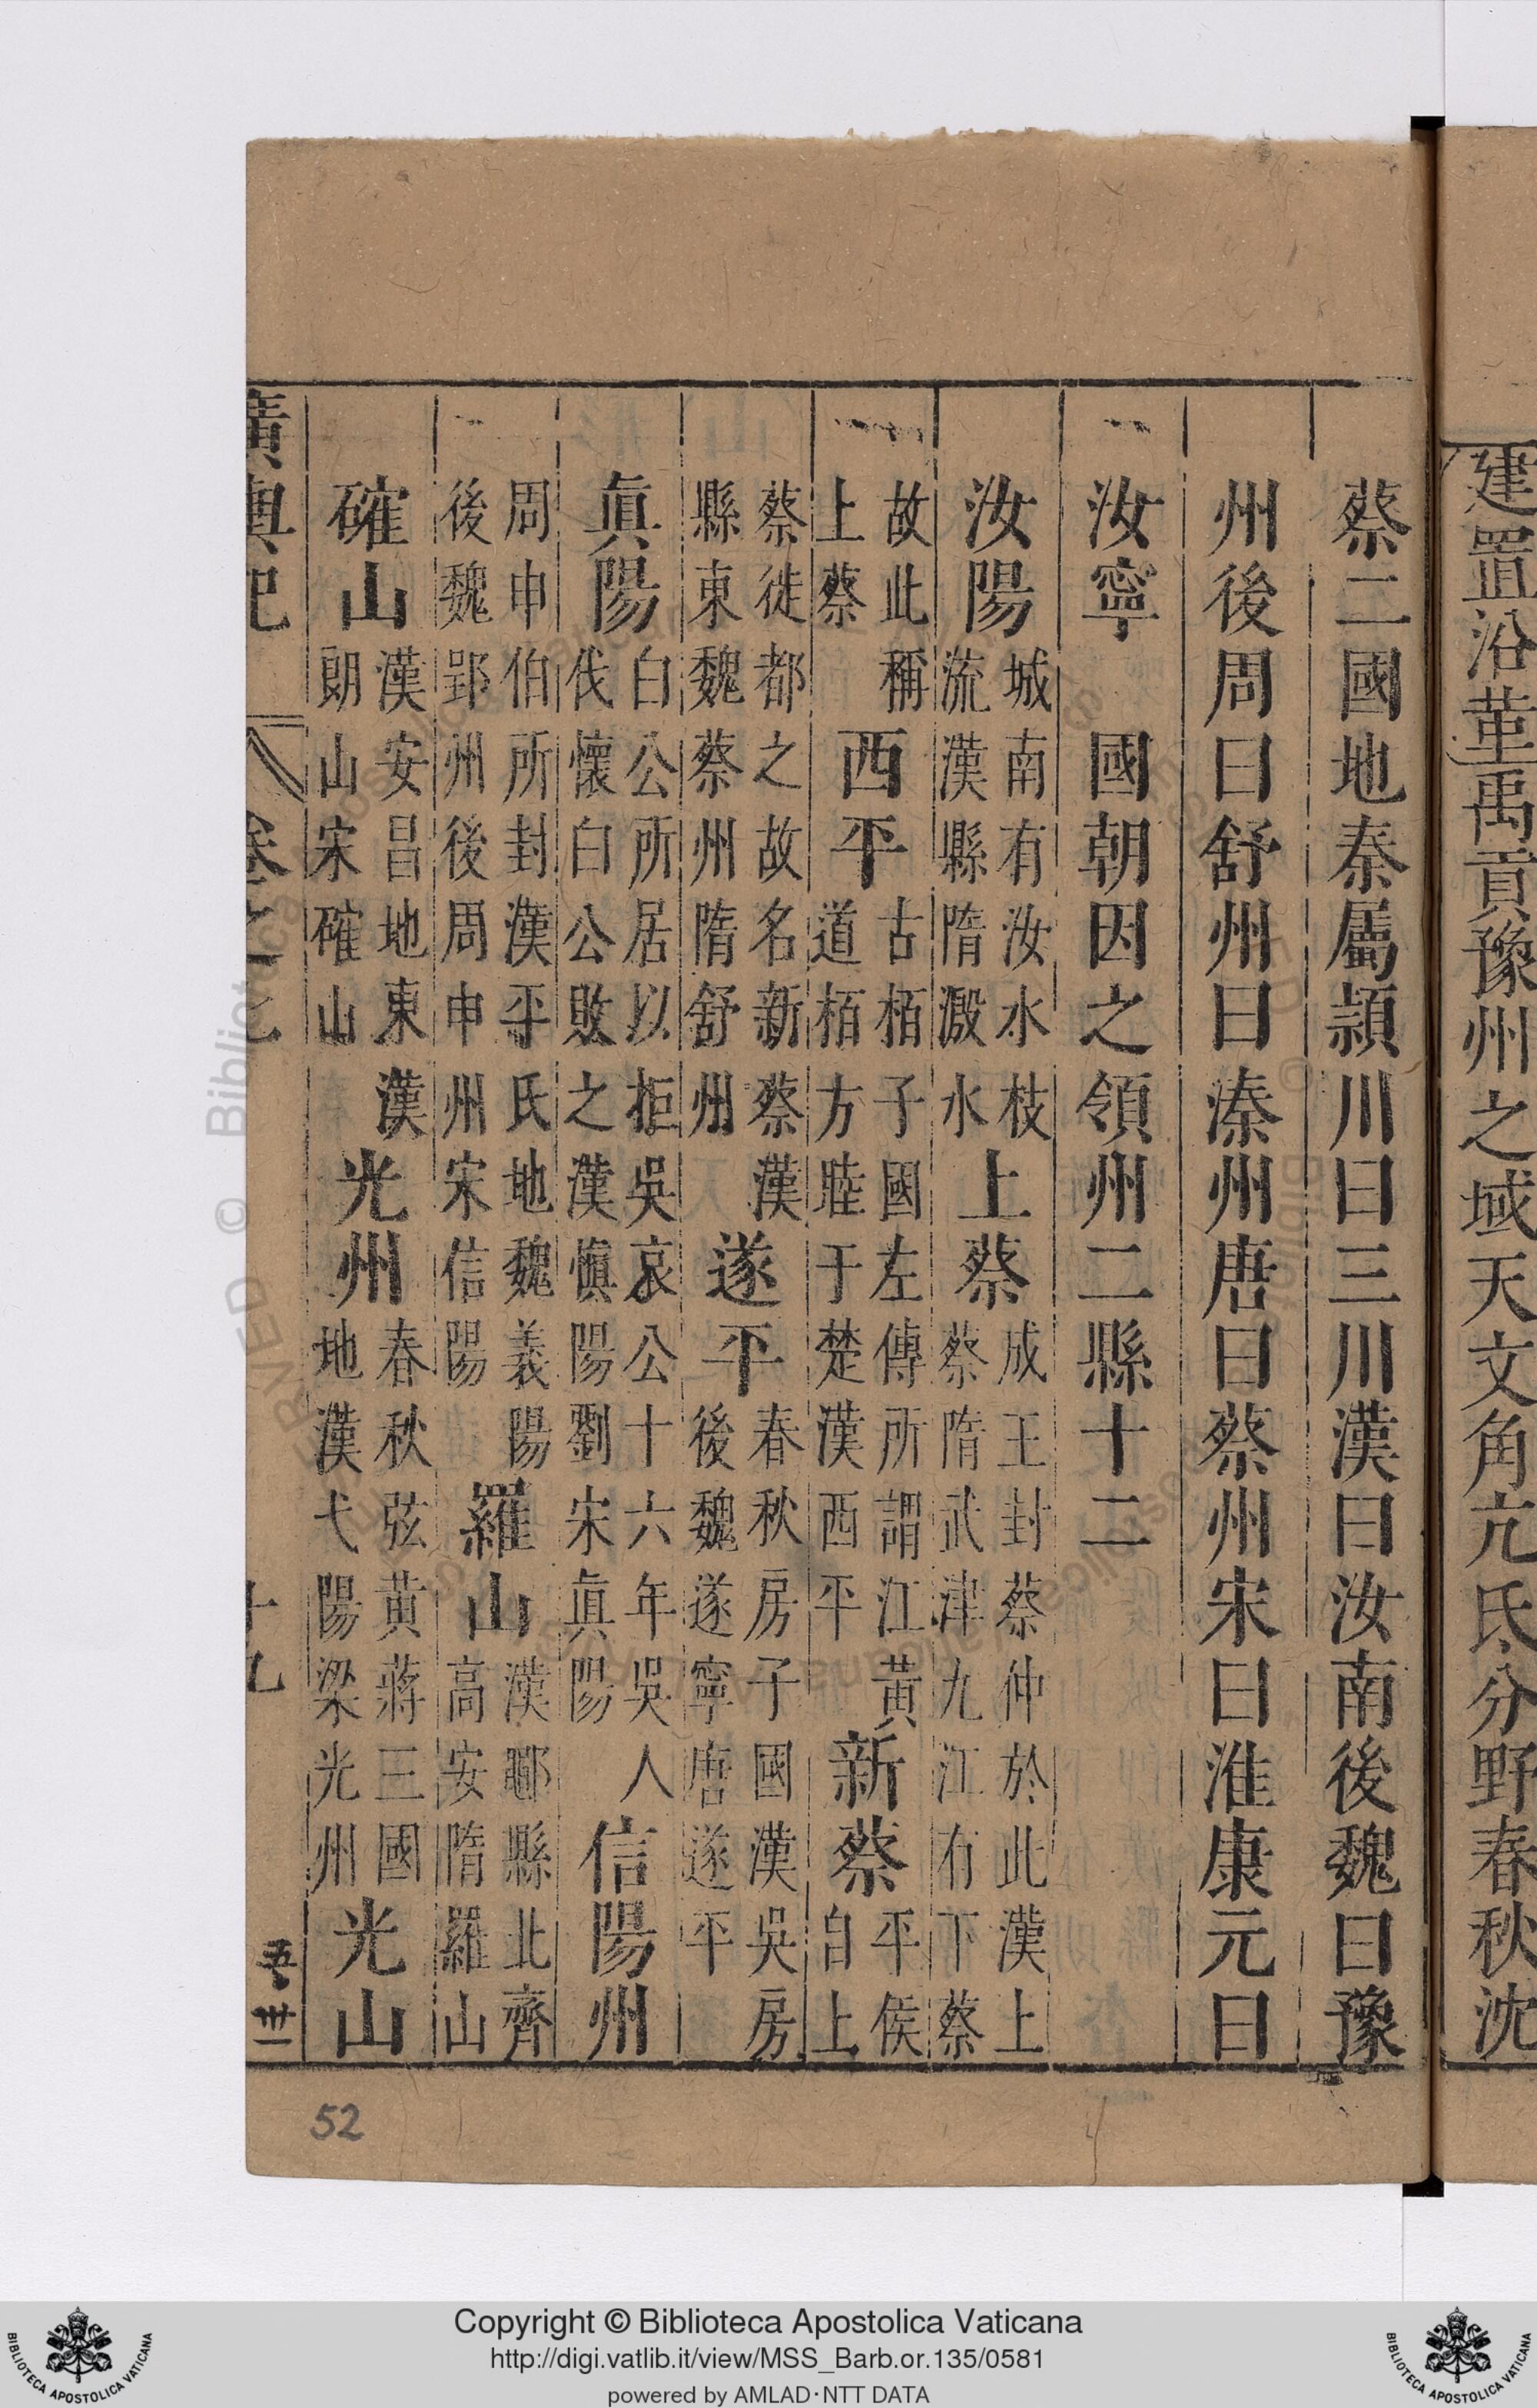 建置沿革禹貢豫州之域天文角亢氐分野春秋沈
蔡二國地秦屬潁川曰三川漢曰汝南後魏曰豫
州後周曰舒州曰溱州唐曰蔡州宋曰淮康元曰
汝寧 國朝因之領州二縣十二
汝陽 城南有汝水枝流漢縣隋溵水 上蔡 成王封蔡仲於此漢上蔡隋武津九江有下蔡
故此稱上蔡 西平 古栢子國左傳所謂江黃道栢方睦于楚漢西平 新蔡 平侯自上
蔡徙都之故名新蔡漢縣東魏蔡州隋舒州 遂平 春秋房子國漢吳房後魏遂寧唐遂平
眞陽 白公所居以拒吳哀公十六年吳人伐懷白公敗之漢愼陽劉宋眞陽 信陽州
周申伯所封漢平氏地魏義陽後魏郢州後周申州宋信陽 羅山 漢鄳縣北齊高安隋羅山
確山 漢安昌地東漢朗山宋確山 光州 春秋弦黃蔣三國地漢弋陽梁光州 光山
廣輿記 卷之七 十九
52
Copyright © Biblioteca Apostolica Vaticana
http://digi.vatlib.it/view/MSS_Barb.or.135/0581
powered by AMLAD·NTT DATA
BIBLIOTECA APOSTOLICA VATICANA
BIBLIOTECA APOSTOLICA VATICANA